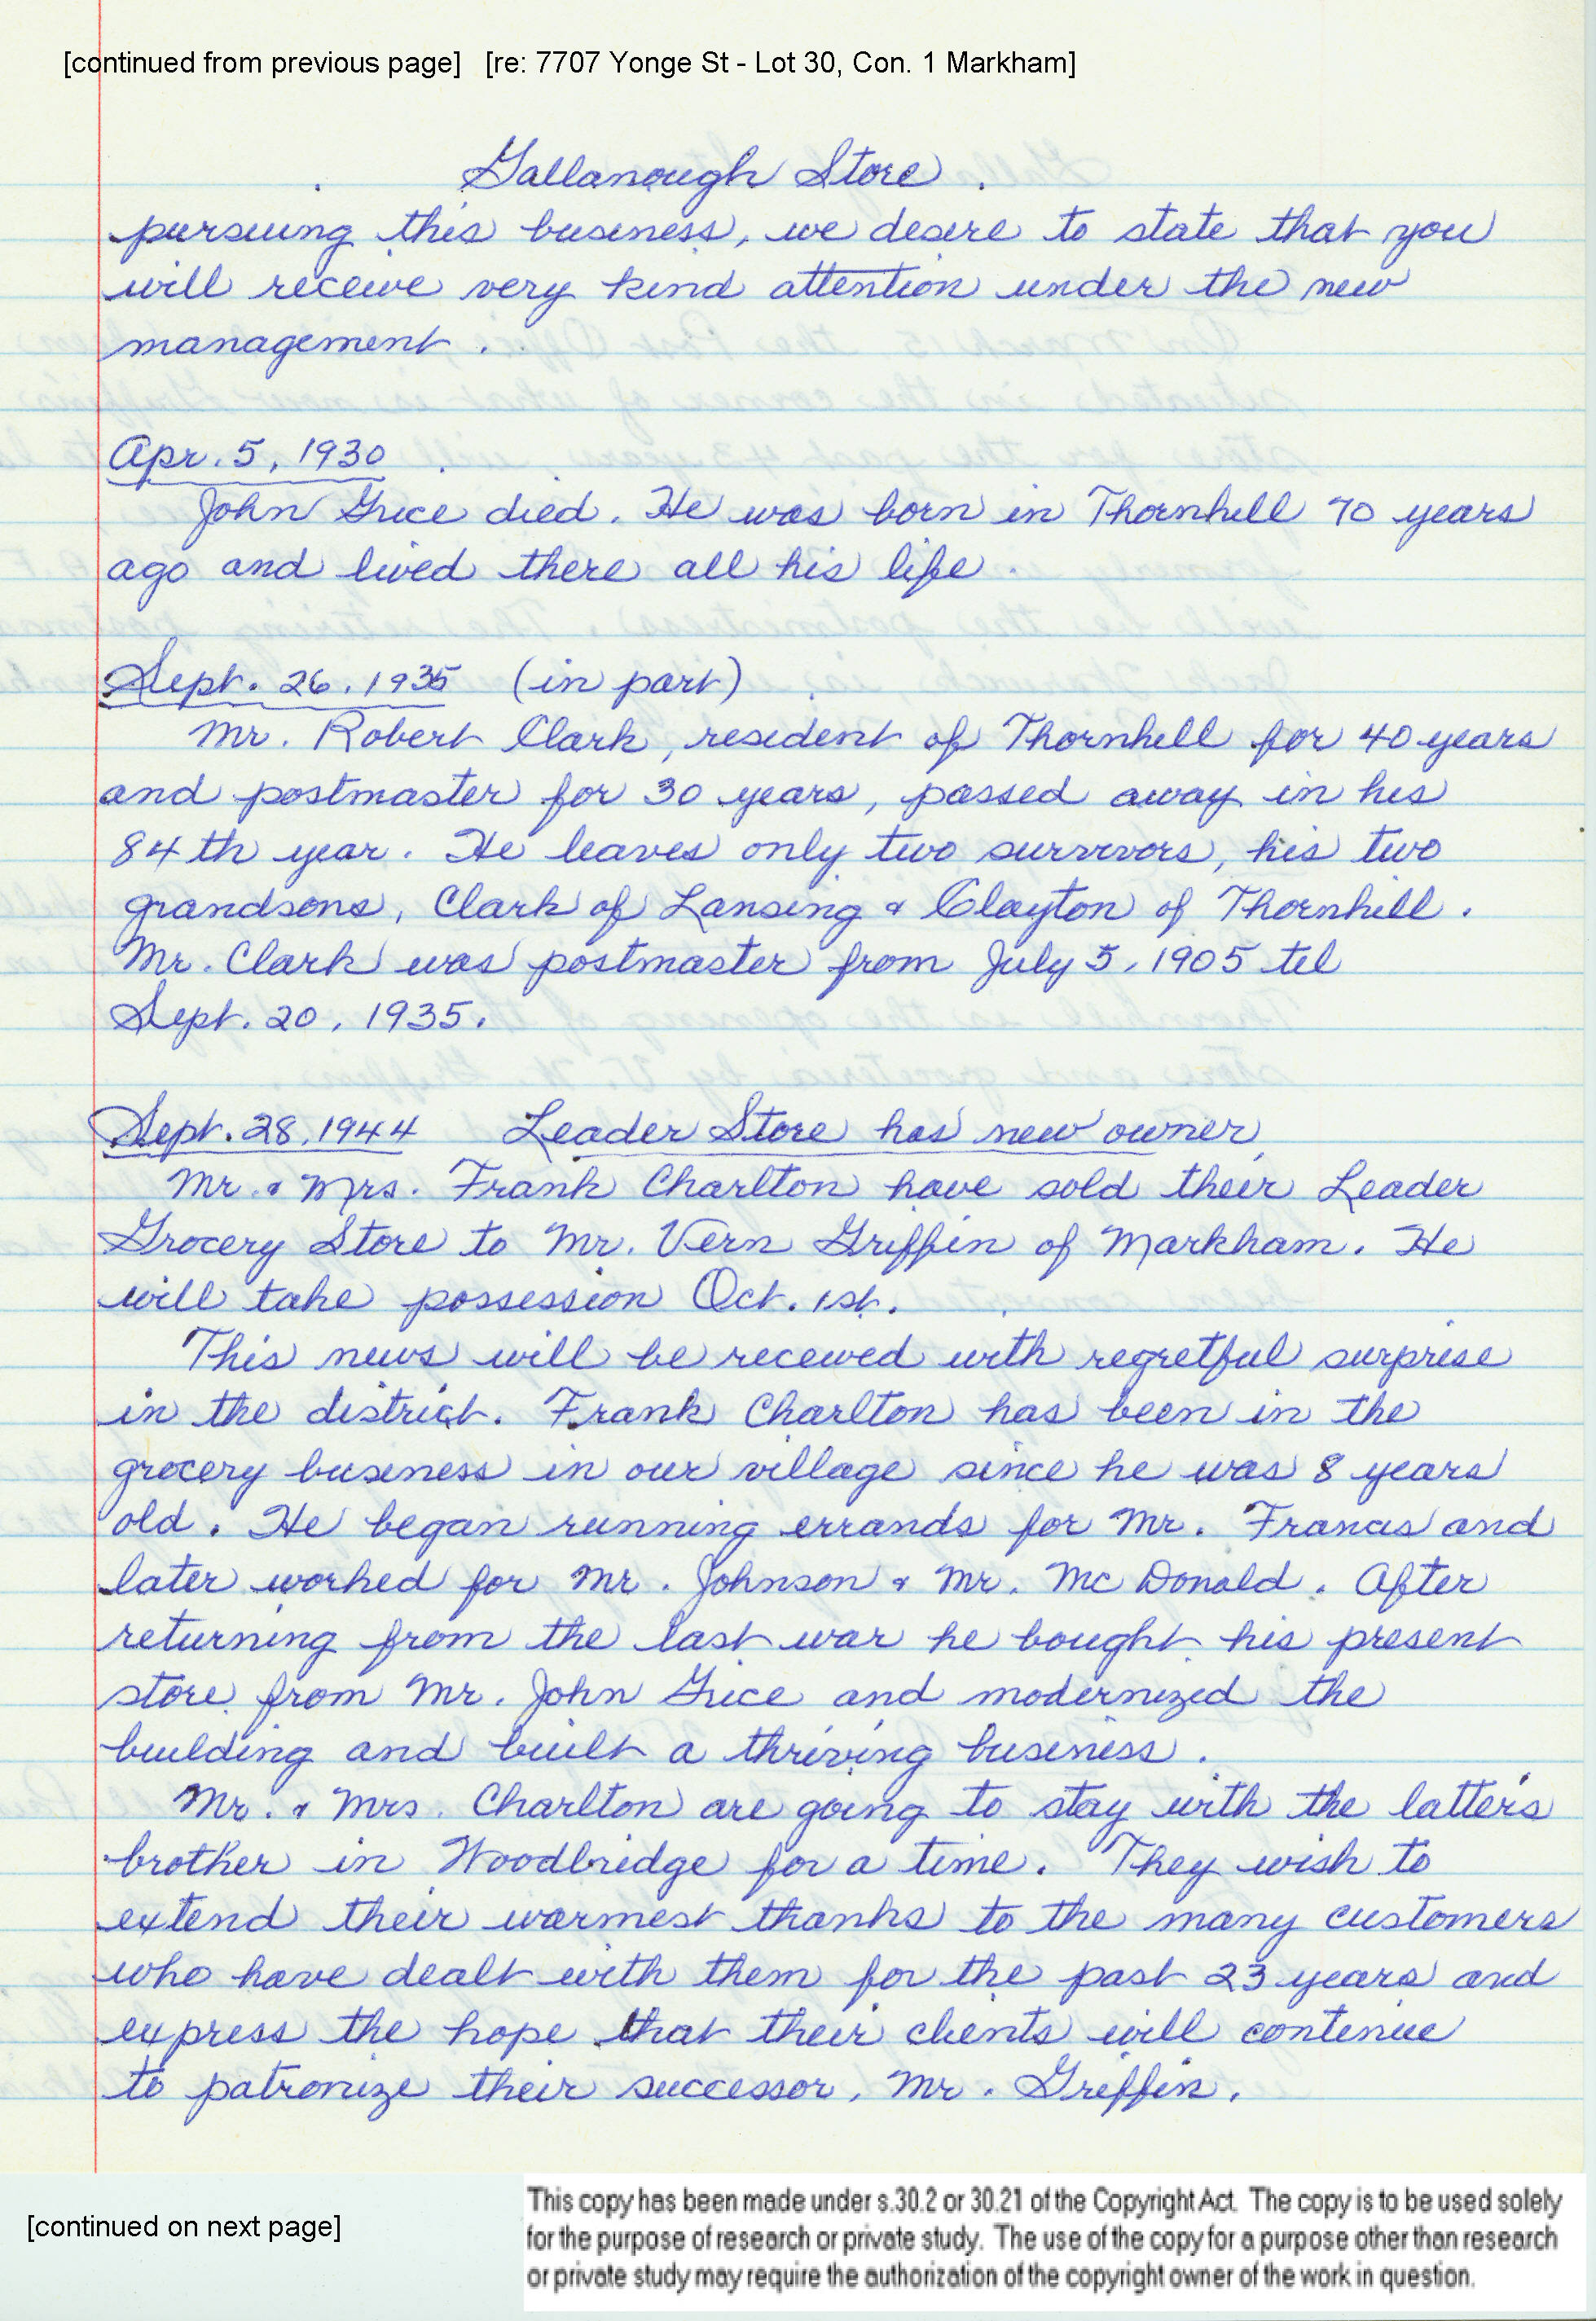 [continued from previous page] [re: 7707 Yonge St - Lot 30, Con. 1 Markham]
Gallanough Store.
pursuing this business, we desire to state that you
will receive very kind attention under the new
management.
Apr. 5, 1930
John Grice died. He was born in Thornhill 70 years
ago and lived there all his life.
Sept. 26, 1935 (in part)
Mr. Robert Clark, resident of Thornhill for 40 years
and postmaster for 30 years, passed away in his
84th year. He leaves only two survivors, his two
grandsons, Clark of Lansing & Clayton of Thornhill.
Mr. Clark was postmaster from July 5, 1905 til
Sept. 20, 1935.
Sept. 28, 1944 Leader Store has new owner
Mr. & Mrs. Frank Charlton have sold their Leader
Grocery Store to Mr. Vern Griffin of Markham. He
will take possession Oct. 1st.
This news will be received with regretful surprise
in the district. Frank Charlton has been in the
grocery business in our village since he was 8 years
old. He began running errands for Mr. Francis and
later worked for Mr. Johnson & Mr. McDonald. After
returning from the last war he bought his present
store from Mr. John Grice and modernized the
building and built a thriving business.
Mr. & Mrs. Charlton are going to stay with the latter's
brother in Woodbridge for a time. They wish to
extend their warmest thanks to the many customers
who have dealt with them for the past 23 years and
express the hope that their clients will continue
to patronize their successor, Mr. Griffin.
[continued on next page]
This copy has been made under s.30.2 or 30.21 of the Copyright Act. The copy is to be used solely
for the purpose of research or private study. The use of the copy for a purpose other than research
or private study may require the authorization of the copyright owner of the work in question.